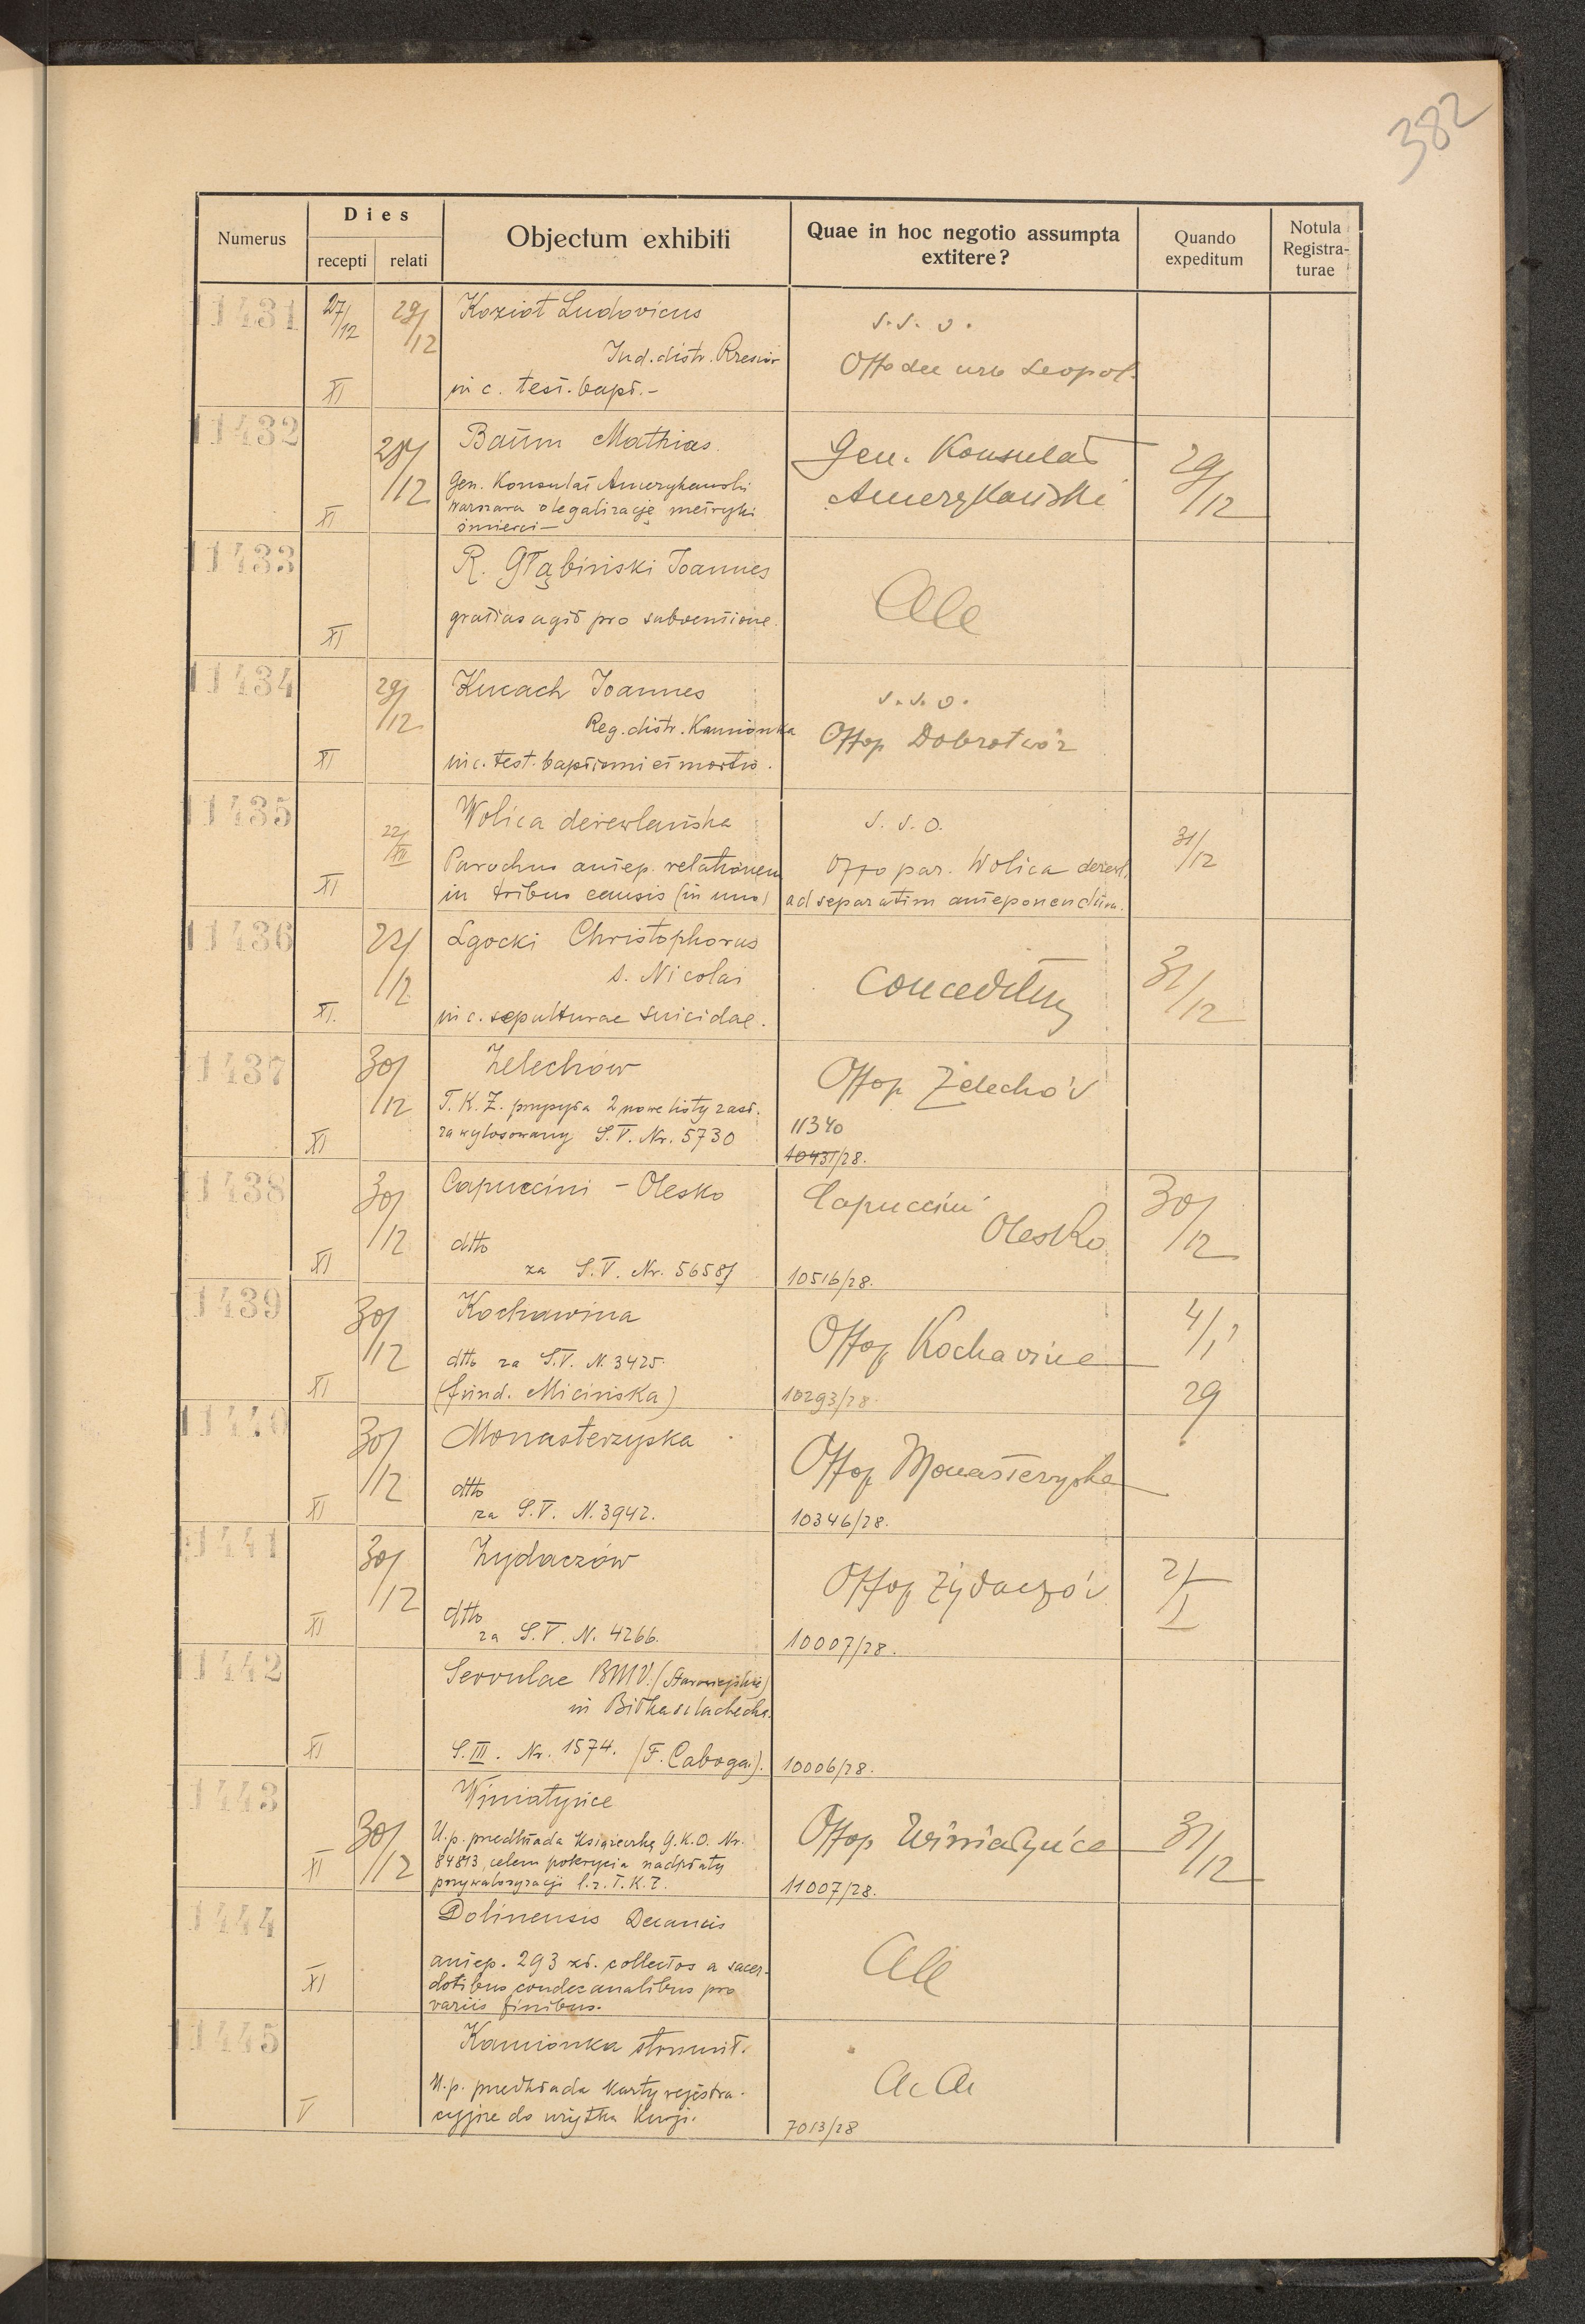 382
Numerus
Dies
recepti relati
Objectum exhibiti
Quae in hoc negotio assumpta
extitere?
Quando
expeditum
Notula
Registra-
turae
11431 27/12 29/12 Kozioł Ludovicus
s. s. o.
Jud. distr.
Offo urb Leopol.
XI in c. test. bapt. -
11432 Baum Mathias
Gen. Konsulat
Amerykański
29/12
/12 Gen. Konsulat Amerykański
Warszawa o legalizację metryki
XI śmierci -
11433 R. Głąbiński Joannes
gratias agit pro subventione.
XI
11434 29/12 Kucach Joannes
s. s. o.
Reg. distr. Kamionka
Offop Dobrotwór
XI in c. test. baptismi et mortis.
11435 Wolica derewlańska
s. s. o.
22/XII
31/12
Parochus antep. relationem
Offo par. Wolica derewl.
XI in tribus causis (in uno)
ad separatim anteponendum.
11436 22/12 Lgocki Christophorus
s. Nicolai
conceditur
31/12
XI. in c. sepulturae suicidae.
11437 30/12 Żelechów
Offop Żelechów
T. K. Z. przysyła 2 nowe listy zast.
11340
XI za wylosowany S. V. Nr. 5730
10431/28.
11438 30/12 Capuccini - Olesko
Capuccini
Olesko
30/12
dtto
XI za S. V. Nr. 5658/
10516/28.
11439 30/12 Kochawina
Offop Kochawina
4/1
29
dtto za S. V. N. 3425.
XI (fund. Micińska)
10293/28.
11440 30/12 Monasterzyska
Offop Monasterzyska
dtto
XI za S. V. N. 3942.
10346/28.
11441 30/12 Żydaczów
Offop Żydaczów
2/I
dtto
XI za S. V. N. 4266.
10007/28.
11442 Servulae BMV. (Starowiejskie)
in Biłka szlachecka.
XI S. III. Nr. 1574. (F. Caboga.).
10006/28.
11443 Winiatyńce
30/12 U. p. przedkłada książeczkę G. K. O. Nr.
Offop Winiatyńce
31/12
XI 84813, celem pokrycia nadpłaty
przywaloryzacji l. z. T. K. Z.
11007/28.
11444 Dolinensis Decanus
antep. 293 zł. collectos a sacer-
XI dotibus condecanalibus pro
variis finibus.
11445 Kamionka strumił.
U. p. przedkłada karty rejestra-
V cyjne do użytku Kurji.
Ac Ac
7013/28